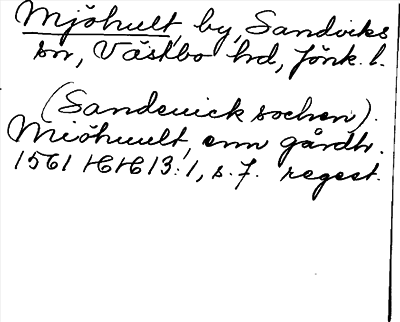 Mjöhult, by, Sandviks
sn, Västbo hd, Jönk. l.
(Sandeuick sochen).
Miöhuult, enn gårdh.
1561 HH 13:1, s. 7. regest.